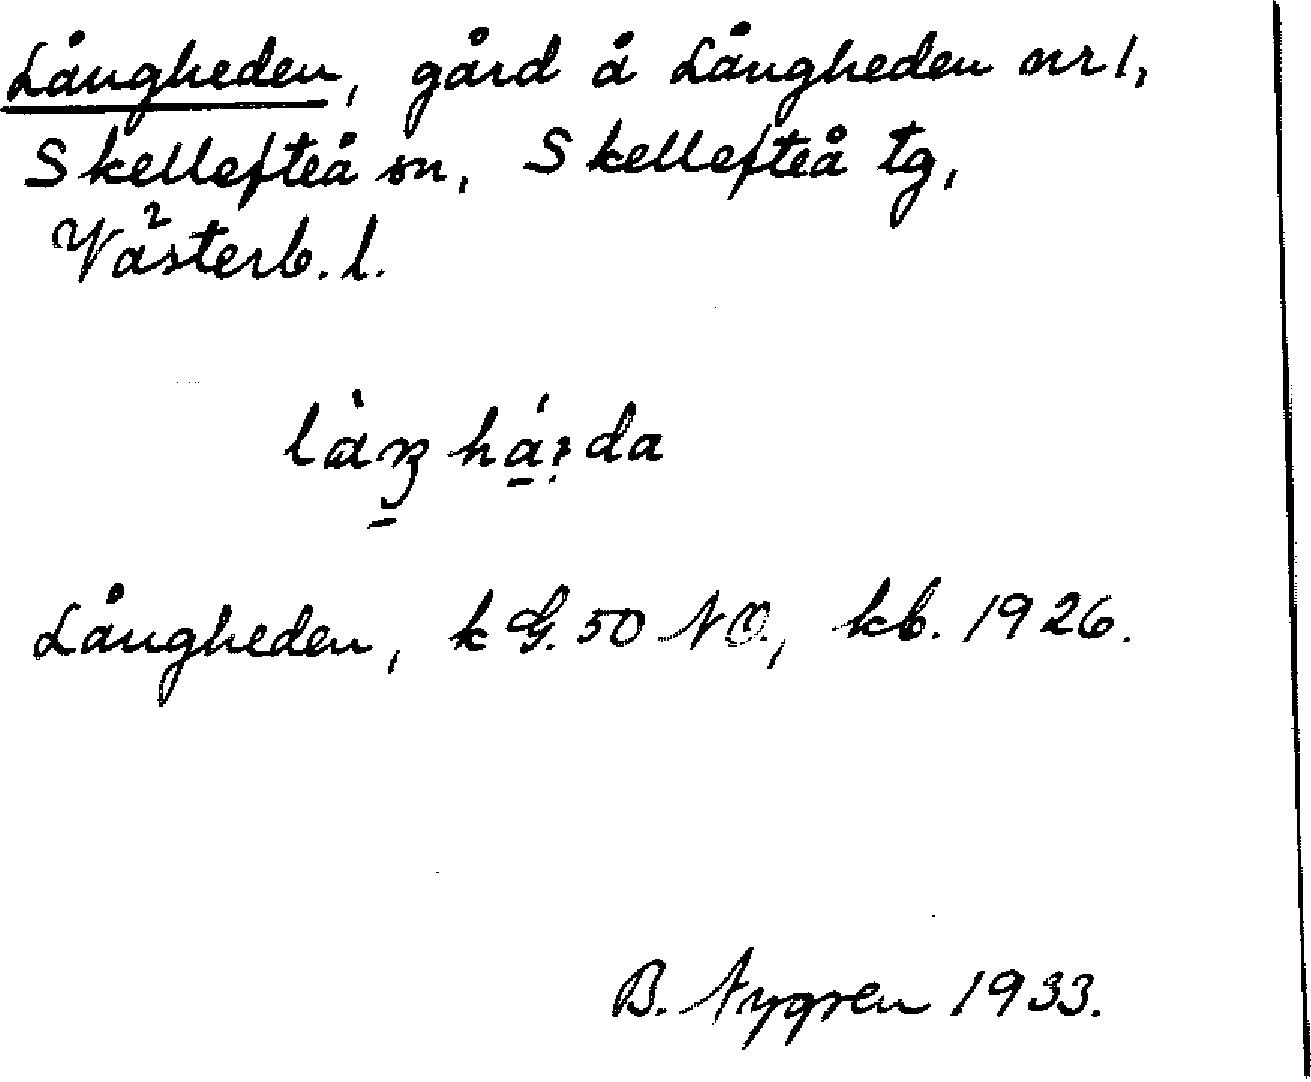 Långheden, gård å Långheden nr 1,
Skellefteå sn, Skellefteå tg,
Västerb. l.
Långheden, k G. 50 NO., kb. 1926.
B. Nygren 1933.